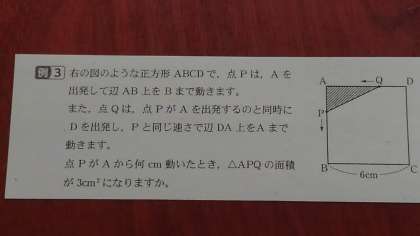 例 3 右の図のような正方形 ABCD で，点 P は，A を
出発して辺 AB 上を B まで動きます。
また，点 Q は，点 P が A を出発するのと同時に
D を出発し，P と同じ速さで辺 DA 上を A まで
動きます。
点 P が A から何 cm 動いたとき，△APQ の面積
が 3cm² になりますか。
A Q D
P
B C
6cm